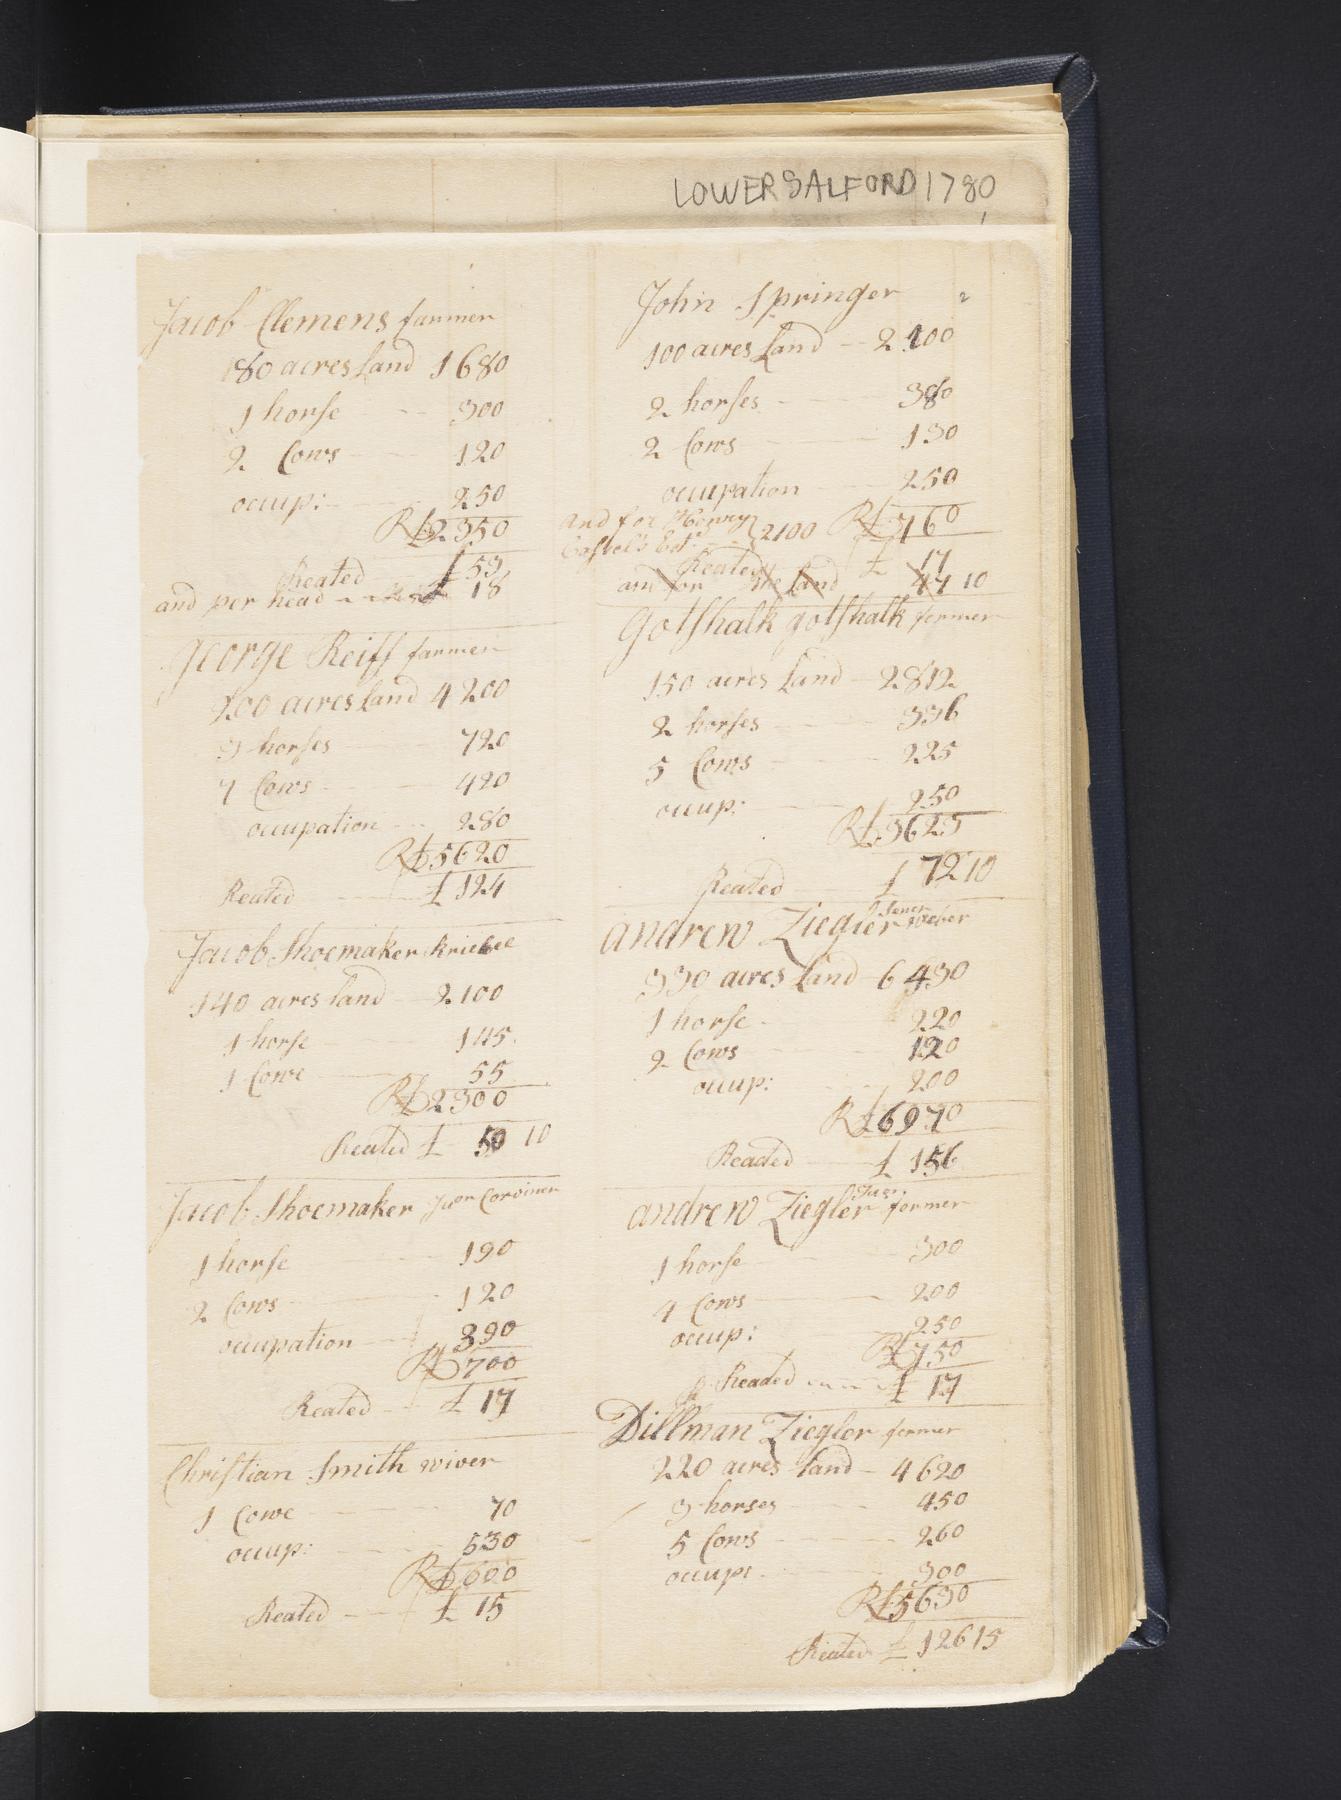 LOWER SALFORD 1780
Jacob Clemens farmer
180 acres Land 1680
1 horse 300
2 Cows 120
occup: 250
R£2350
Reated £53
and per head £ 18
George Reiff farmer
200 acres Land 4200
3 horses 720
7 Cows 420
occupation 280
R£5620
Reated £124
Jacob Shoemaker
140 acres land 2100
1 horse 145
1 Cowe 55
R£2300
Reated £ 50 10
Jacob Shoemaker Juor Corviner
1 horse 190
2 Cows 120
occupation 390
R£700
Reated £ 17
Christian Smith wiver
1 Cowe 70
occup: 530
R£600
Reated £ 15
John Springer
100 acres Land 2400
2 horses 380
2 Cows 130
occupation 250
and for Henry
Cassel's Est. 2100 R£3160
Reated £ 17
and for the land 47 10
Gotshalk gotshalk fermer
150 acres Land 2812
2 horses 336
5 Cows 225
occup: 250
R£3623
Reated £ 72 10
andrew Ziegler Sener weber
330 acres Land 6430
1 horse 220
2 Cows 120
occup: 200
R£6970
Readed £ 156
andrew Ziegler Juer fermer
1 horse 300
4 Cows 200
occup: 250
R£750
Readed £ 17
Dillman Ziegler fermer
220 acres Land 4620
3 horses 450
5 Cows 260
occup: 300
R£5630
Reated £ 126 15